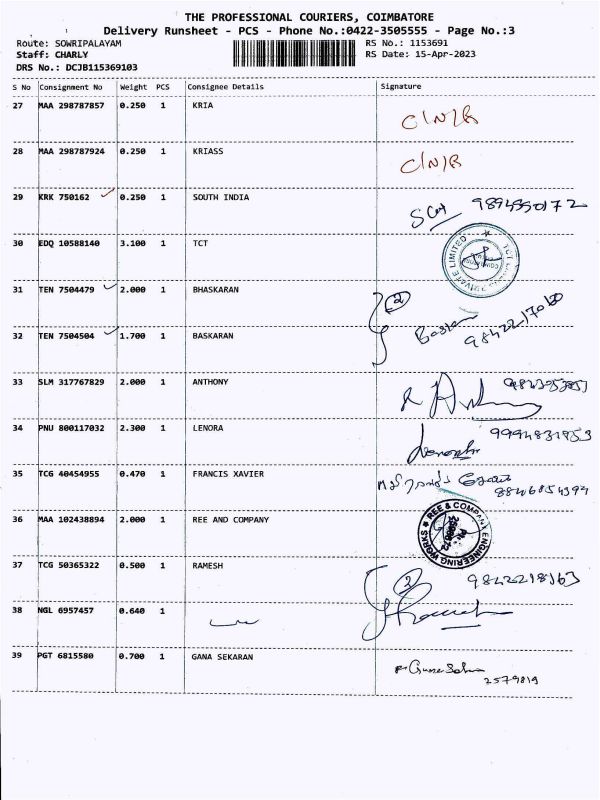 THE PROFESSIONAL COURIERS, COIMBATORE
Delivery Runsheet - PCS - Phone No.:0422-3505555 - Page No.:3
Route: SOWRIPALAYAM RS No.: 1153691
Staff: CHARLY RS Date: 15-Apr-2023
DRS No.: DCJB115369103
S No Consignment No Weight PCS Consignee Details Signature
27 MAA 298787857 0.250 1 KRIA C/N/R
28 MAA 298787924 0.250 1 KRIASS C/N/R
29 KRK 750162 0.250 1 SOUTH INDIA
30 EDQ 10588140 3.100 1 TCT
TCT PRIVATE LIMITED
31 TEN 7504479 2.000 1 BHASKARAN 2
32 TEN 7504504 1.700 1 BASKARAN
33 SLM 317767829 2.000 1 ANTHONY
34 PNU 800117032 2.300 1 LENORA
35 TCG 40454955 0.470 1 FRANCIS XAVIER
36 MAA 102438894 2.000 1 REE AND COMPANY
REE & COMPANY ENGINEERING WORKS
37 TCG 50365322 0.500 1 RAMESH 2
38 NGL 6957457 0.640 1
39 PGT 6815580 0.700 1 GANA SEKARAN
2579819